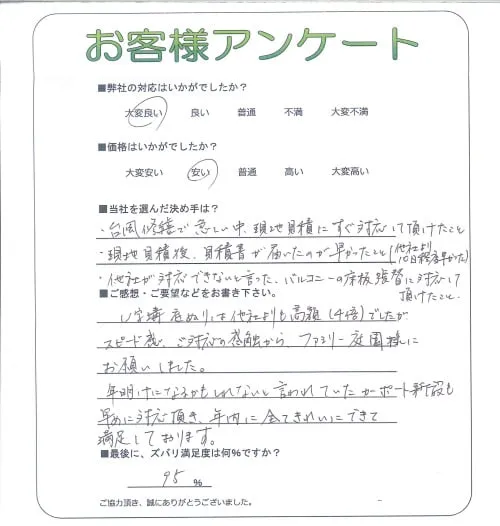 お客様アンケート
■弊社の対応はいかがでしたか？
大変良い 良い 普通 不満 大変不満
■価格はいかがでしたか？
大変安い 安い 普通 高い 大変高い
■当社を選んだ決め手は？
・台風修繕で忙しい中、現地見積にすぐ対応して頂けたこと
・現地見積後、見積書が届いたのが早かったこと(他社より10日程早かった)
・他社が対応できないと言った、バルコニーの床板張替に対応して
頂けたこと。
■ご感想・ご要望などをお書き下さい。
は他社よりも高額(4倍)でしたが
スピード感、ご対応の感触から、ファミリー庭園様に
お願いしました。
年明けになるかもしれないと言われていたカーポート新設も
早めに対応頂き、年内に全てきれいにできて
満足しております。
■最後に、ズバリ満足度は何%ですか？
95 %
ご協力頂き、誠にありがとうございました。